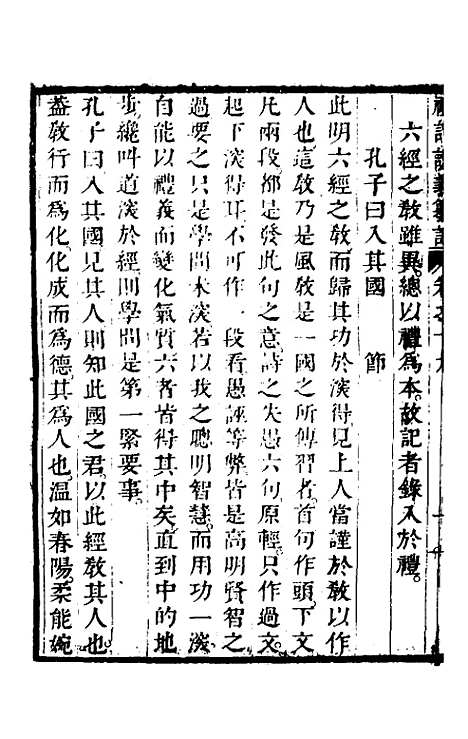 六經之敎雖異總以禮爲本故記者錄入於禮
孔子曰入其國　節
此明六經之敎而歸其功於深得見上人當謹於敎以作
人也這敎乃是風敎是一國之所傳習者首句作頭下文
凡兩段都是發此句之意詩之失愚六句原輕只作過文
起下深得耳不可作一段看愚誣等弊皆是高明賢智之
過要之只是學問未深若以我之聰明智慧而用功一深
自能以禮義而變化氣質六者皆得其中矣直到中的地
步纔叫道深於經則學問是第一緊要事
孔子曰入其國見其人則知此國之君以此經敎其人也
葢敎行而爲化化成而爲德其爲人也溫如春陽柔能婉